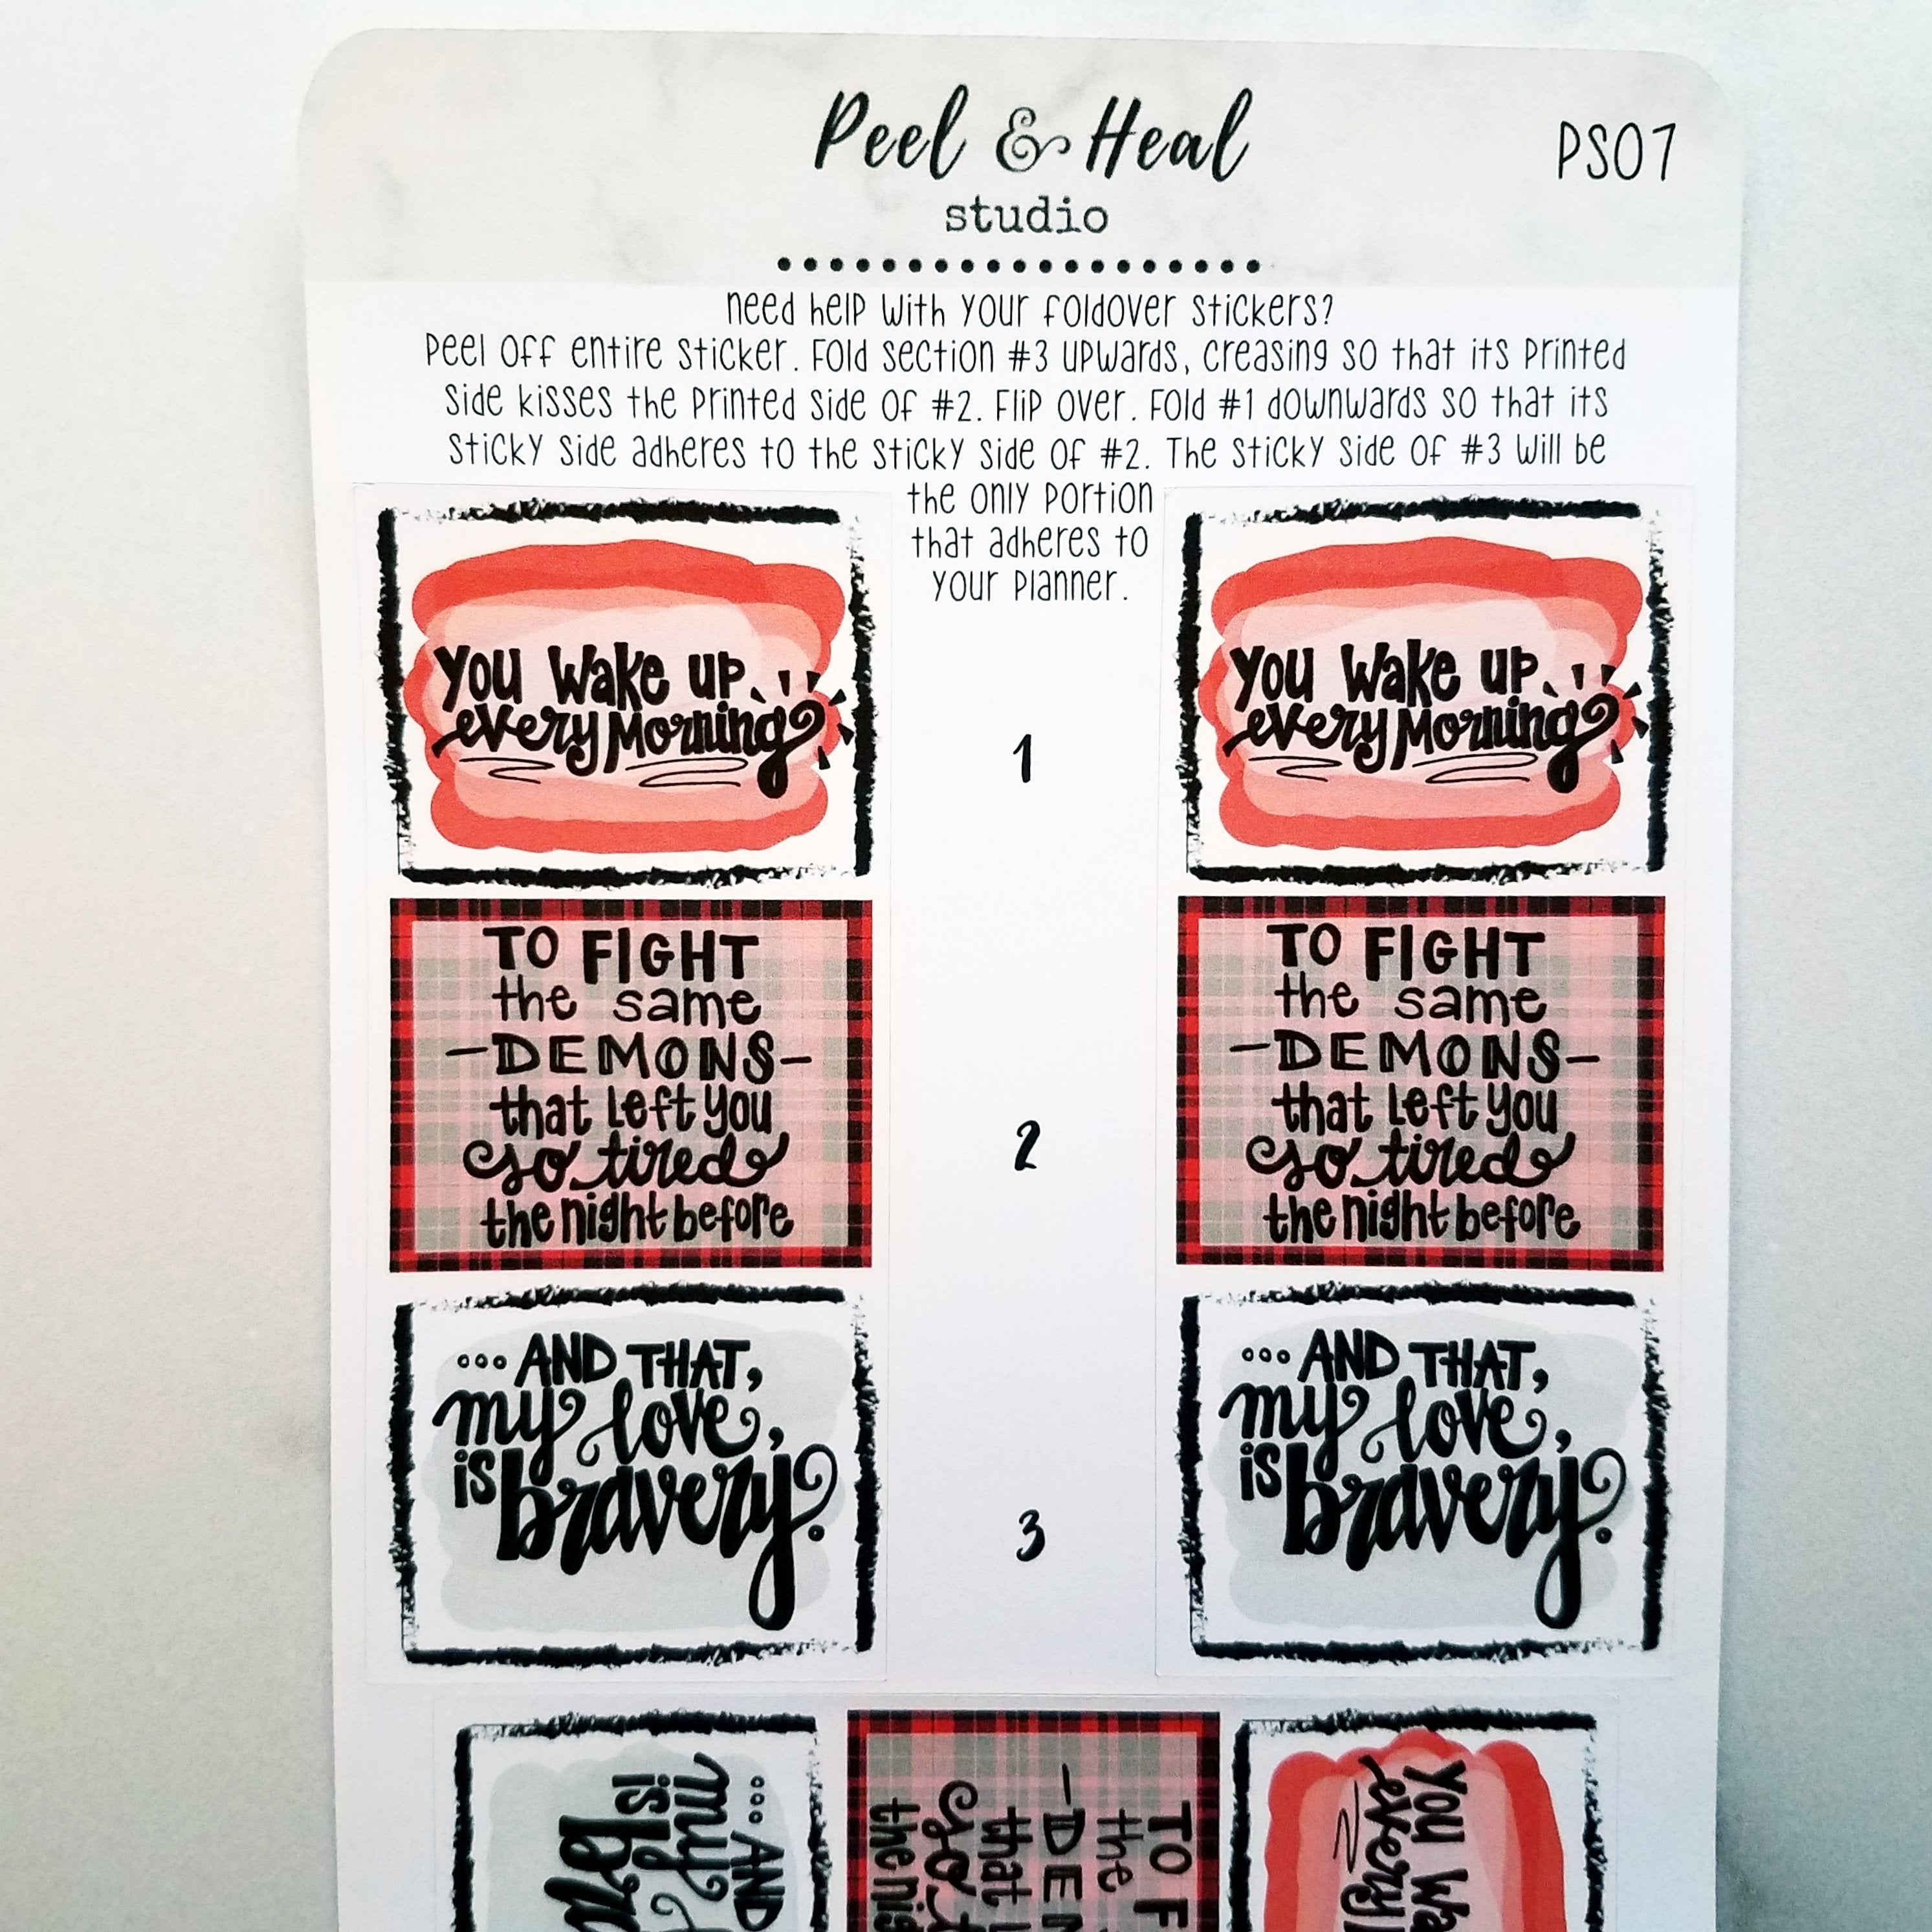 Peel & Heal
studio
PS07
need help with your foldover stickers?
Peel off entire sticker. Fold section #3 upwards, creasing so that its printed
side kisses the printed side of #2. Flip over. Fold #1 downwards so that its
sticky side adheres to the sticky side of #2. The sticky side of #3 will be
the only portion
that adheres to
your planner.
you wake up
every morning
1
you wake up
every morning
TO FIGHT
the same
-DEMONS-
that left you
so tired
the night before
2
TO FIGHT
the same
-DEMONS-
that left you
so tired
the night before
...AND THAT,
my love,
is bravery.
3
...AND THAT,
my love,
is bravery.
...AND
my
is
TO F
the
-DEM
that
so t
the nig
you wa
every